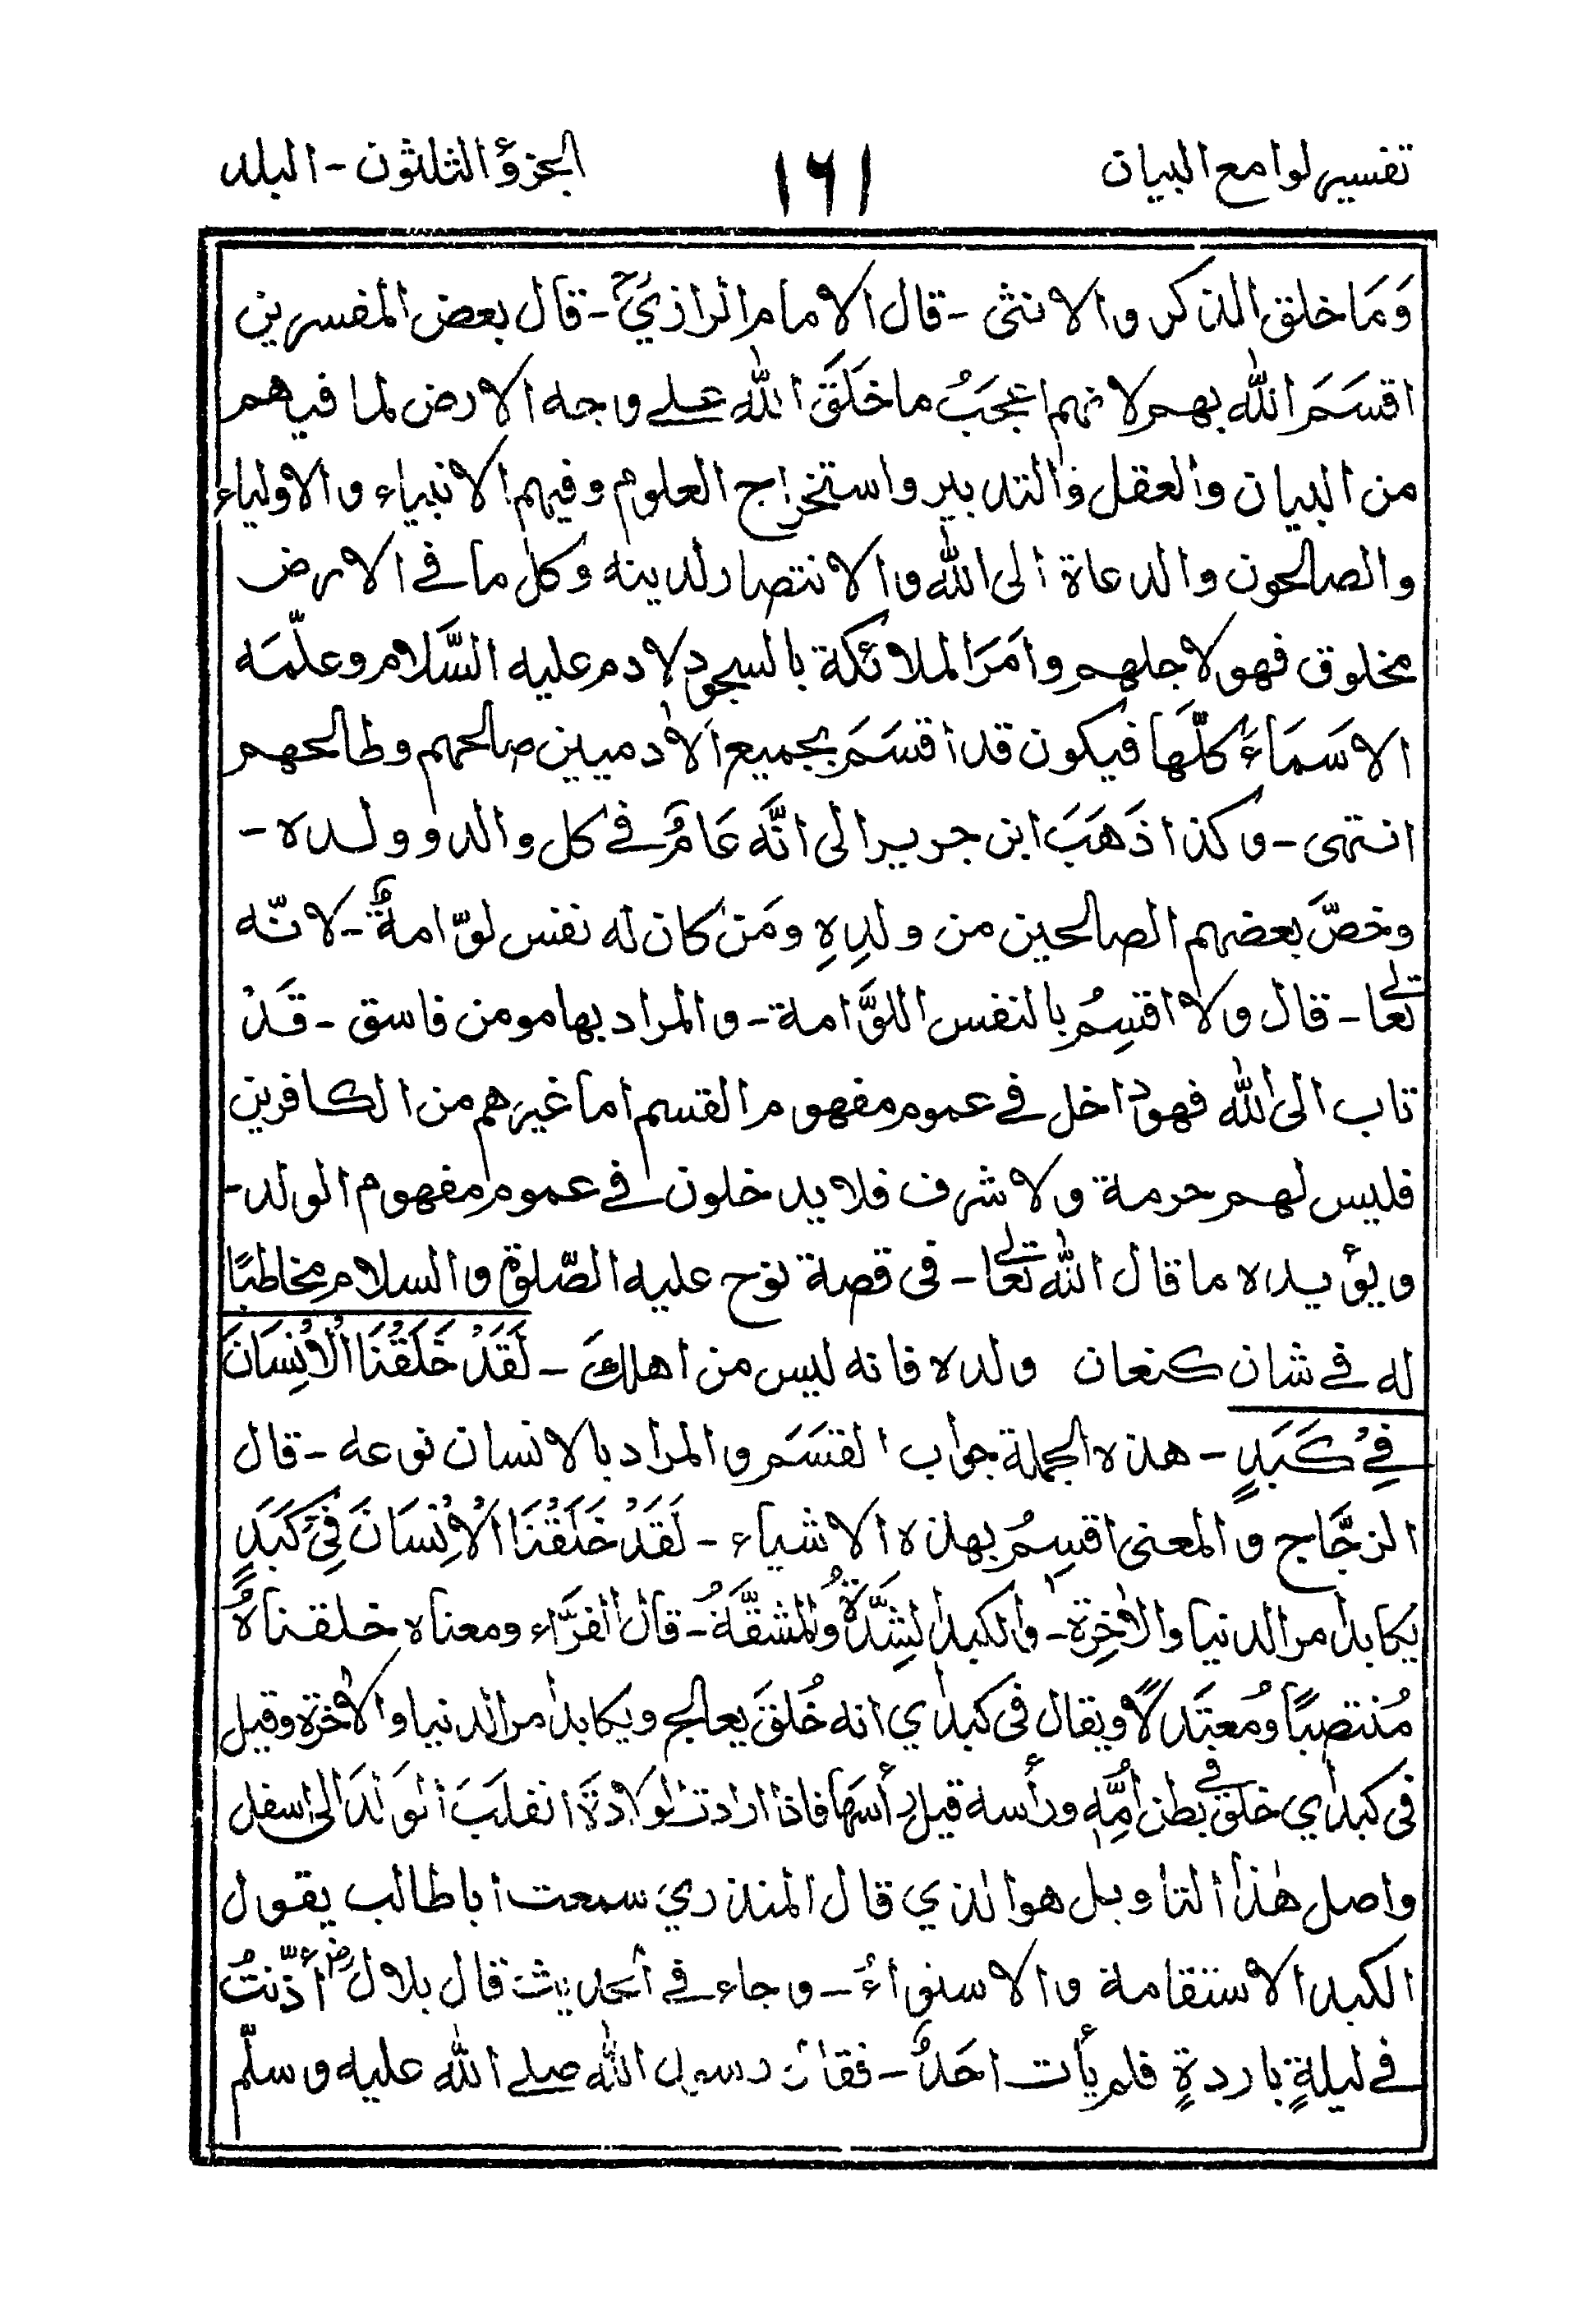 تفسير لوامع البيان ١٦١ الجزؤ الثلثون - البلد
وَمَا خلق الذكر والانثى - قال الامام الرازيؒ - قال بعض المفسرين
اقسَمَ الله بهم لانهم اعجَبُ ما خَلَقَ الله على وجه الارض لما فيهم
من البيان والعقل والتدبير واستخراج العلوم وفيهم الانبياء والاولياء
والصالحون والدعاة الى الله والانتصار لدينه وكل ما فى الارض
مخلوق فهو لاجلهم وامَرَ الملائكة بالسجود لادم عليه السَّلام وعلّمَه
الاسَمَاءَ كلّهَا فيكون قد اقسَمَ بجميع الادميين صالحهم وطالحهم
انتهى - وكذا ذَهَبَ ابن جرير الى انَّه عَامٌ فى كل والد وولده -
وخصَّ بعضهم الصالحين من ولدِهِ ومَن كان له نفس لوّامةٌ - لانّه
تعالى - قال ولا اقسِمُ بالنفس اللوَّامة - والمراد بها مومن فاسق - قَدْ
تاب الى الله فهو داخل فى عموم مفهوم القسم اما غيرهم من الكافرين
فليس لهم حرمة ولا شرف فلا يدخلون فى عموم مفهوم الولد -
ويؤيده ما قال الله تعالى - فى قصة نوح عليه الصّلوة والسلام مخاطبًا
له فى شان كنعان ولده فانه ليس من اهلك - لَقَدْ خَلَقْنَا الْاِنْسَانَ
فِىْ كَبَدٍ - هذه الجملة جواب القَسَم والمراد بالانسان نوعه - قال
الزجَّاج والمعنى اقسِمُ بهذه الاشياء - لَقَدْ خَلَقْنَا الْاِنْسَانَ فِىْ كَبَدٍ
يكابد امر الدنيا والاٰخِرة - والكبد الشِدَّةُ والمشقَّةُ - قال الفرَّاء ومعناه خلقناهُ
مُنتصبًا ومُعتَدلًا ويقال فى كبد اي انه خُلقَ يعالج ويكابد امر الدنيا والاٰخرة وقيل
فى كبد اي خلق فى بطن اُمِّهِ ورأسه قبل رأسها فاذا ارادت الوَلادةَ انقلَبَ الوَلدَ الى اسفل
واصل هٰذا التاويل هو الذي قال المنذري سمعت ابا طالب يقول
الكبد الاستقامة والاستواءُ - وجاء فى الحديث قال بلالؓ اذّنتُ
فى ليلةٍ باردةٍ فلم يأت احَدٌ - فقال رسول الله صلى الله عليه وسلّم